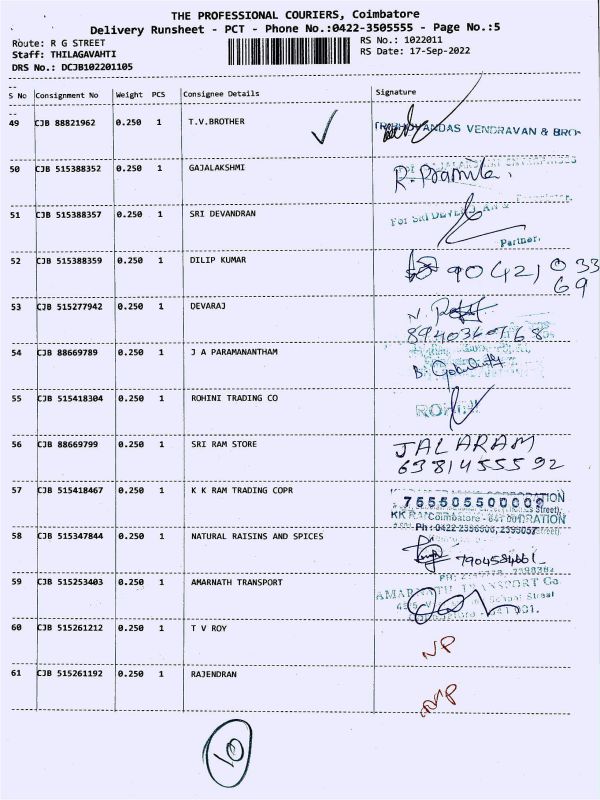 THE PROFESSIONAL COURIERS, Coimbatore
Delivery Runsheet - PCT - Phone No.:0422-3505555 - Page No.:5
Route: R G STREET
RS No.: 1022011
Staff: THILAGAVAHTI
RS Date: 17-Sep-2022
DRS No.: DCJB102201105
S No Consignment No Weight PCS Consignee Details Signature
49 CJB 88821962 0.250 1 T.V.BROTHER VENDRAVAN & BROS
50 CJB 515388352 0.250 1 GAJALAKSHMI R. Pramila.
51 CJB 515388357 0.250 1 SRI DEVANDRAN For Sri
Partner.
52 CJB 515388359 0.250 1 DILIP KUMAR 90421 033
69
53 CJB 515277942 0.250 1 DEVARAJ N.
8940360768
54 CJB 88669789 0.250 1 J A PARAMANANTHAM B.
55 CJB 515418304 0.250 1 ROHINI TRADING CO ROHINI
56 CJB 88669799 0.250 1 SRI RAM STORE JALARAM
6381455592
57 CJB 515418467 0.250 1 K K RAM TRADING COPR
755505500009
KK RAM Coimbatore - 641 001
58 CJB 515347844 0.250 1 NATURAL RAISINS AND SPICES
59 CJB 515253403 0.250 1 AMARNATH TRANSPORT
AMARNATH TRANSPORT Co
School Street
641 001.
60 CJB 515261212 0.250 1 T V ROY NP
61 CJB 515261192 0.250 1 RAJENDRAN NP
10